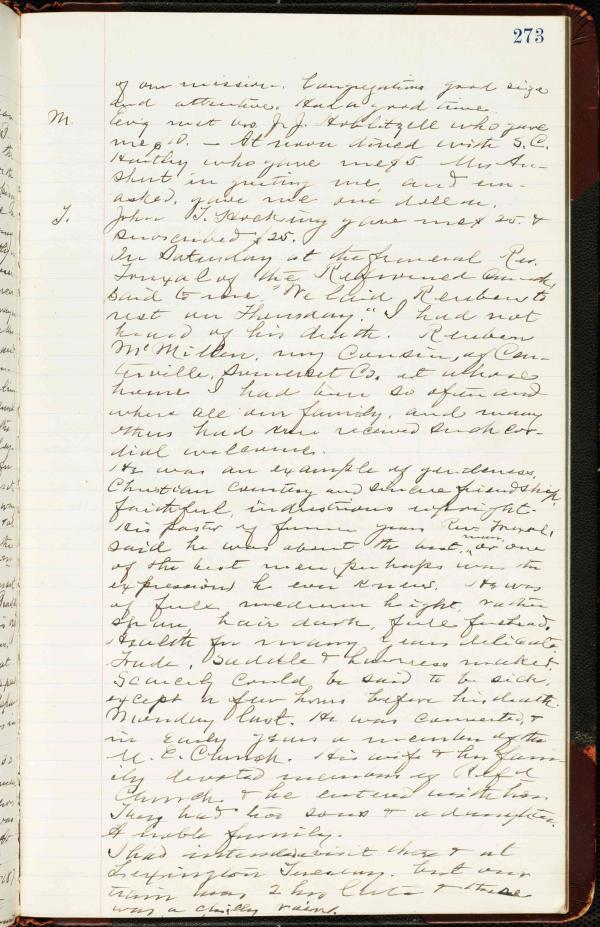 273
of our mission. Congregations good size
and attentive. Had a good time
M. Ev'g met bro. J. J. Hoblitzell who gave
me $10. — At noon dined with S. C.
Hartley who gave me $5 Mrs
in greeting me, and un-
asked, gave me one dollar.
T. John T. Hocking gave me $25. &
subscribed $25.
On Saturday at the funeral Rev.
Truxal of the Reformed Church
said to me, "We laid Reuben to
rest on Thursday." I had not
heard of his death. Reuben
McMillen, my Cousin, of Cen-
terville, Somerset Co. at whose
home I had been so often and
where all our family, and many
others had received such cor-
dial welcomes.
He was an example of gentleness,
Christian courtesy and sincere friendship,
faithful, industrious upright.
His pastor of former years Rev. Truxal,
said he was about the best man, or one
of the best men, perhaps was the
expression, he ever knew. He was
of full medium height, rather
spare, hair dark, full forehead.
Health for many years delicate.
Trade, Saddle & harness maker.
Scarcely could be said to be sick,
except a few hours before his death.
Monday last. He was converted, &
in early years a member of the
M. E. Church. His wife & her fam-
ily devoted members of Ref'd
Church. & he entered with her.
They had two sons & a daughter.
A noble family.
I had intended visit there & at
Lexington Tuesday. but our
train was 2 hrs late & there
was a chilly rain.